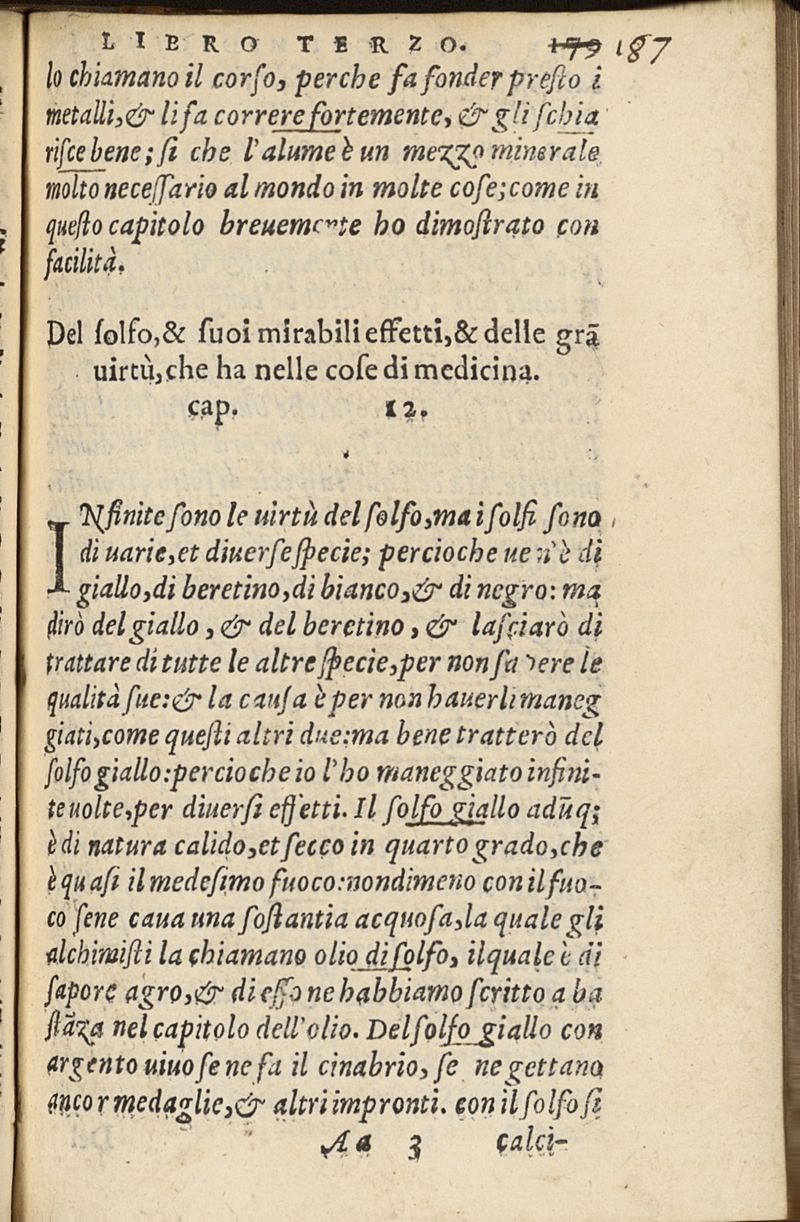 LIBRO TERZO. 179 187
lo chiamano il corſo, perche fa fonder preſto i
metalli,& li fa correre fortemente, & gli ſchia
riſce bene; ſi che l'alume è un mezzo minerale
molto neceſſario al mondo in molte coſe; come in
queſto capitolo breuemente ho dimoſtrato con
facilità.
Del ſolfo,& ſuoi mirabili effetti,& delle grã
uirtù,che ha nelle coſe di medicina.
cap. 12.
INfinite ſono le uirtù del ſolfo,ma i ſolfi ſono
di uarie,et diuerſe ſpecie; percioche ue n'è di
giallo,di beretino,di bianco,& di negro: ma
dirò del giallo, & del beretino, & laſciarò di
trattare di tutte le altre ſpecie,per non ſapere le
qualità ſue:& la cauſa è per non hauerli maneg
giati,come queſti altri due:ma bene tratterò del
ſolfo giallo:percioche io l'ho maneggiato infini-
te uolte,per diuerſi effetti. Il ſolfo giallo adũq;
è di natura calido,et ſecco in quarto grado,che
è quaſi il medeſimo fuoco:nondimeno con il fuo-
co ſene caua una ſoſtantia acquoſa,la quale gli
alchimiſti la chiamano olio di ſolfo, ilquale è di
ſapore agro,& di eſſo ne habbiamo ſcritto a ba
ſtãza nel capitolo dell'olio. Del ſolfo giallo con
argento uiuo ſe ne fa il cinabrio, ſe ne gettano
ancor medaglie,& altri impronti. con il ſolfo ſi
Aa 3 calci-